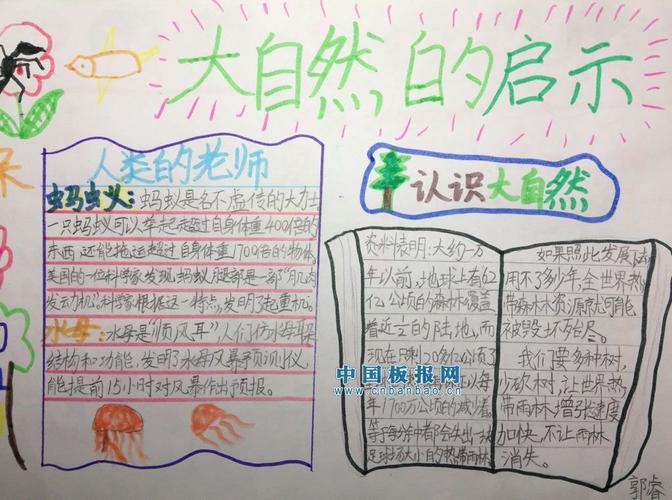 大自然的启示
人类的老师
蚂蚁：蚂蚁是名不虚传的大力士
一只蚂蚁可以举起超过自身体重400倍的
东西，还能拖运超过自身体重1700倍的物体。
美国的一位科学家发现，蚂蚁腿部是一部“肌肉
发动机”，科学家根据这一特点，发明了起重机。
水母：水母是“顺风耳”人们仿水母耳朵
结构和功能，发明了水母风暴预测仪，
能提前15小时对风暴作出预报。
认识大自然
资料表明：大约一万
年以前，地球上有62
亿公顷的森林覆盖
着近1/2的陆地，而
现在只剩28多亿公顷了
以每
年1700万公顷的减少着
等
足球场大小的热带雨林
如果照此发展
用不了多少年，全世界热
带森林木资源就可能
被毁坏殆尽。
我们要多种树，
少砍树，让世界热
带雨林增张速度
加快，不让雨林
消失。
中国板报网
www.cnbanbao.cn
郭睿